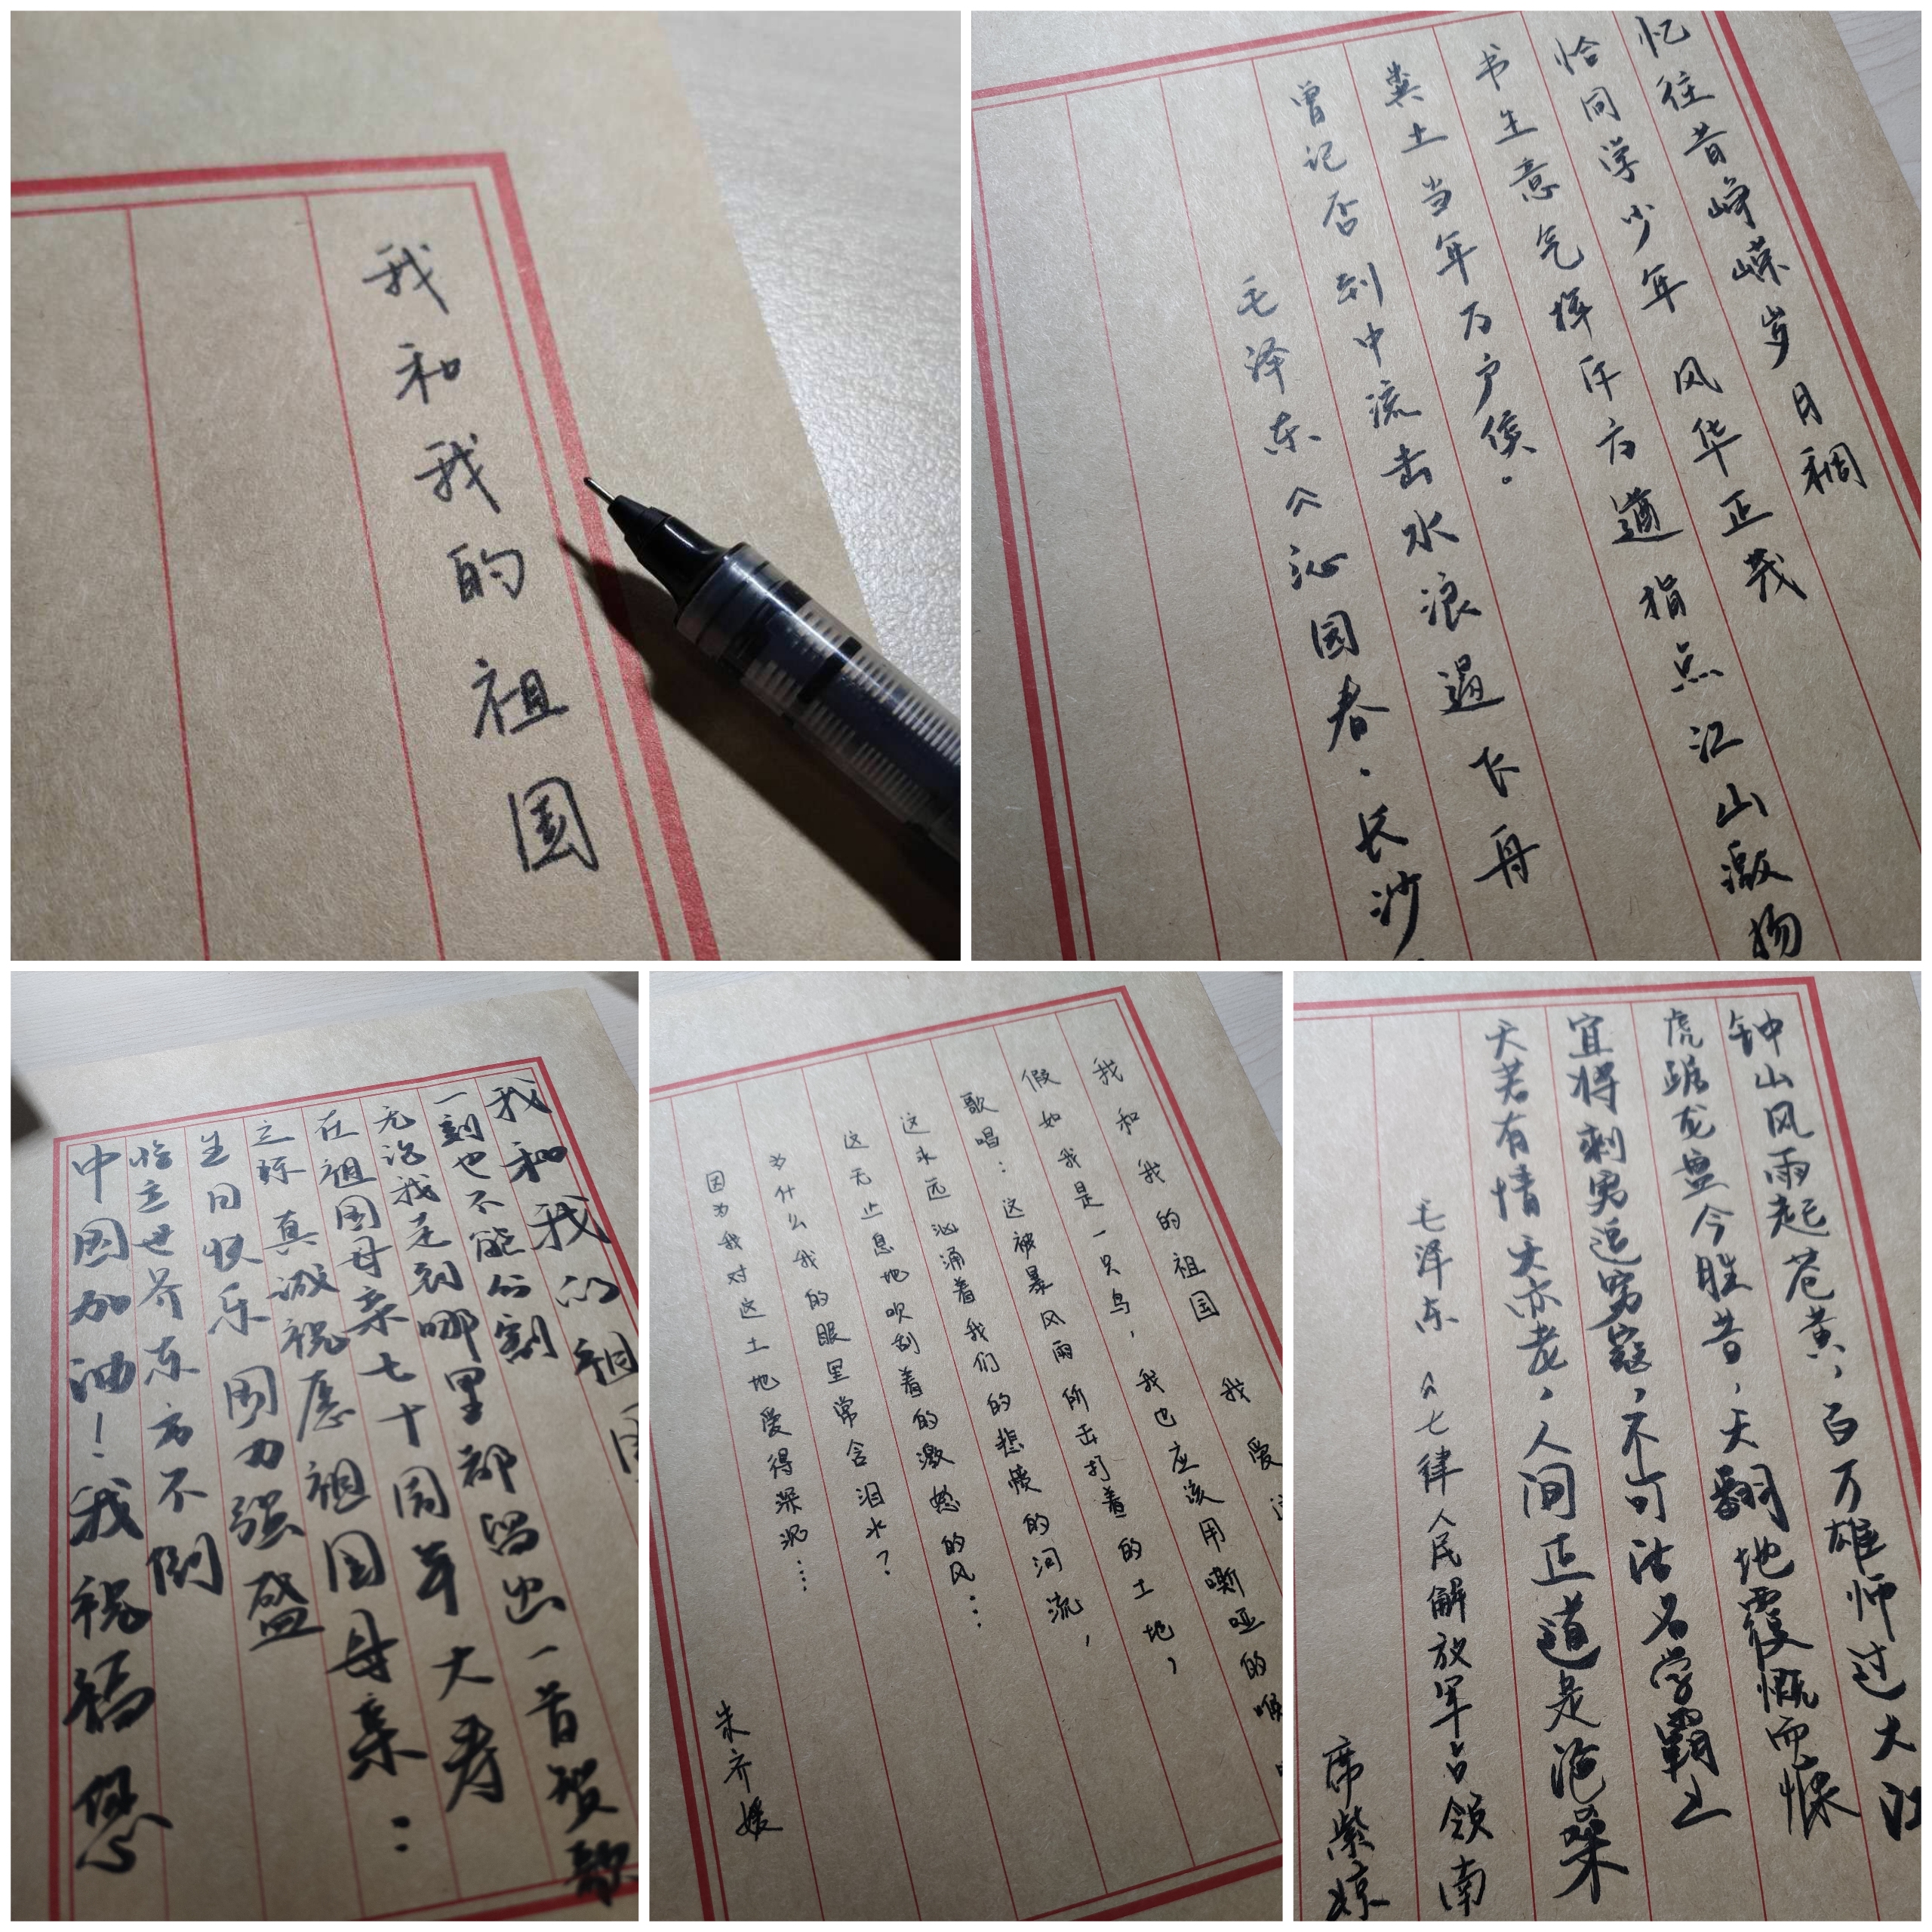 我和我的祖国
忆往昔峥嵘岁月稠
恰同学少年 风华正茂
书生意气挥斥方遒 指点江山激扬
粪土当年万户侯。
曾记否 到中流击水浪遏飞舟
毛泽东《沁园春·长沙
我和我的祖国
一刻也不能分割
无论我走到哪里都留出一首贺歌
在祖国母亲七十周年大寿
之际 真诚祝愿祖国母亲：
生日快乐 国力强盛
临立世界东方不倒
中国加油！我祝福您
我和我的祖国 我爱
假如我是一只鸟，我也应该用嘶哑的喉
歌唱：这被暴风雨所击打着的土地，
这永远汹涌着我们的悲愤的河流，
这无止息地吹刮着的激怒的风…
为什么我的眼里常含泪水？
因为我对这土地爱得深沉…
朱齐媛
钟山风雨起苍黄，百万雄师过大江
虎踞龙盘今胜昔，天翻地覆慨而慷
宜将剩勇追穷寇，不可沽名学霸王
天若有情天亦老，人间正道是沧桑
毛泽东《七律人民解放军占领南
席紫